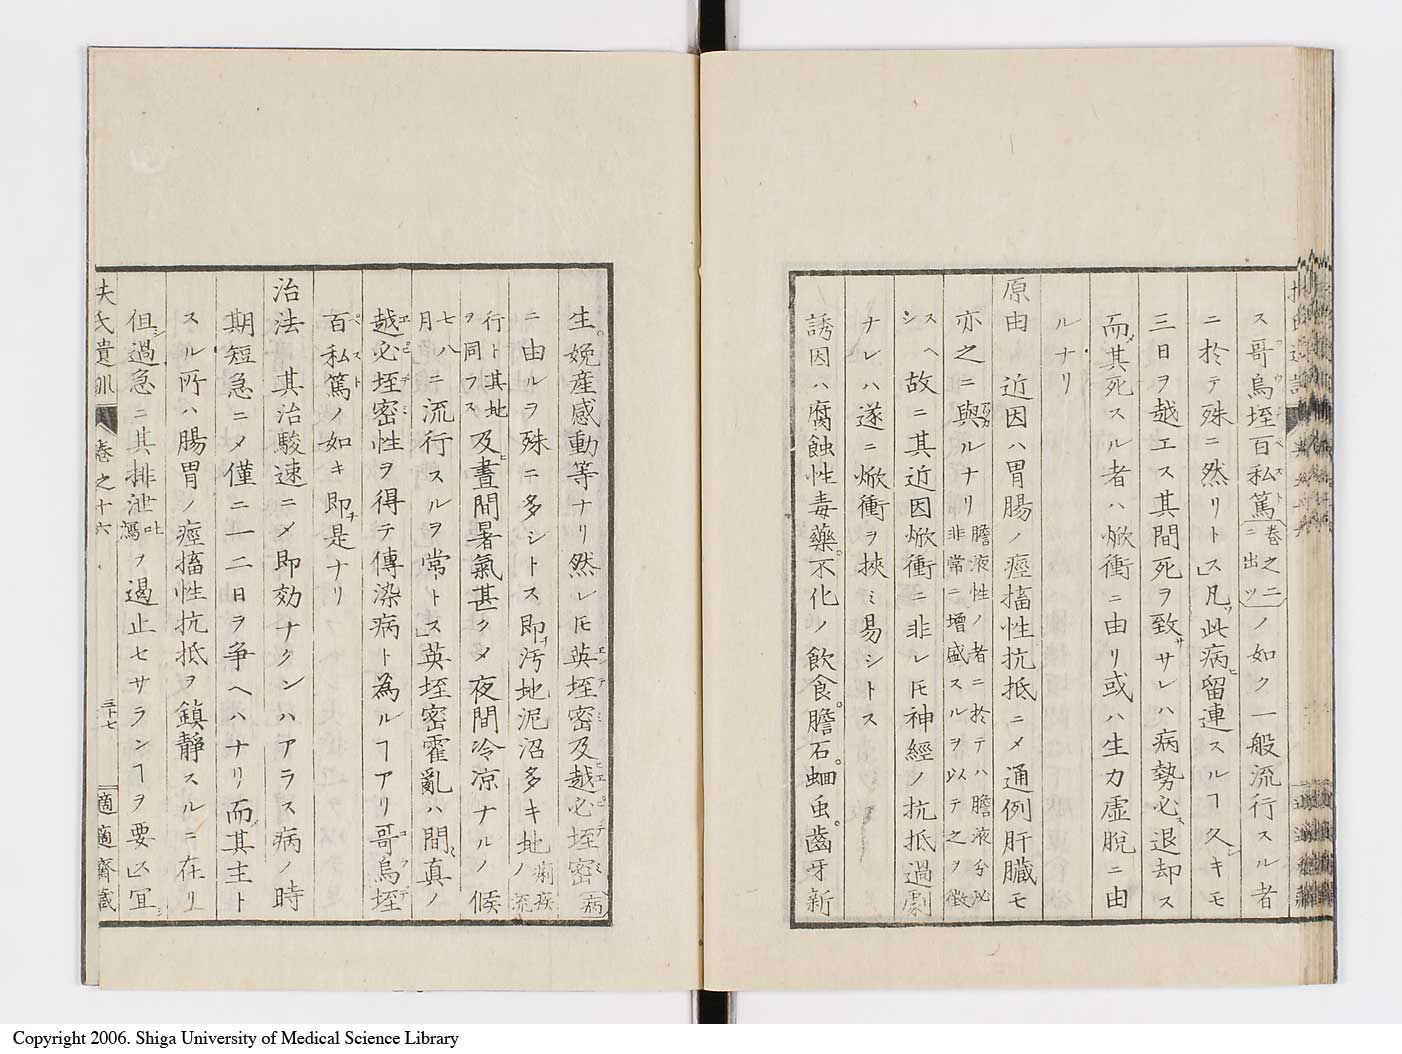 ス哥烏垤百私篤卷之二ニ出ツノ如ク一般流行スル者
ニ於テ殊ニ然リトス」凡此病留連スルヿ久キモ
三日ヲ越エス其間死ヲ致サヾレハ病勢必退却ス
而其死スル者ハ焮衝ニ由リ或ハ生力虛脫ニ由
ルナリ
原由 近因ハ胃腸ノ痙搐性抗抵ニメ通例肝臓モ
亦之ニ與ルナリ膽液性ノ者ニ於テハ膽液分泌非常ニ增盛スルヲ以テ之ヲ徵
スヘシ故ニ其近因焮衝ニ非レ𪜈神經ノ抗抵過劇
ナレハ遂ニ焮衝ヲ挾ミ易シトス
誘因ハ腐蝕性毒藥。不化ノ飮食。膽石。蛔虫。齒牙新
生。娩産感動等ナリ然レ𪜈英垤密及越必垤密病
ニ由ルヲ殊ニ多シトス即汚地泥沼多キ地ノ痢疾流
行ト其地ヲ同フス及晝間暑氣甚クメ夜間冷凉ナルノ候
七八月ニ流行スルヲ常トス」英垤密霍亂ハ間真ノ
越必垤密性ヲ得テ傳染病ト為ルヿアリ哥烏垤
百私篤ノ如キ即是ナリ
治法 其治駿速ニメ即効ナクンハアラス病ノ時
期短急ニメ僅ニ一二日ヲ争ヘハナリ而其主ト
スル所ハ腸胃ノ痙搐性抗抵ヲ鎮靜スルニ在リ
但過急ニ其排泄吐瀉ヲ遏止セサランヿヲ要ス」冝
夫氏遺訓
卷之十六
三十七
適適齋藏